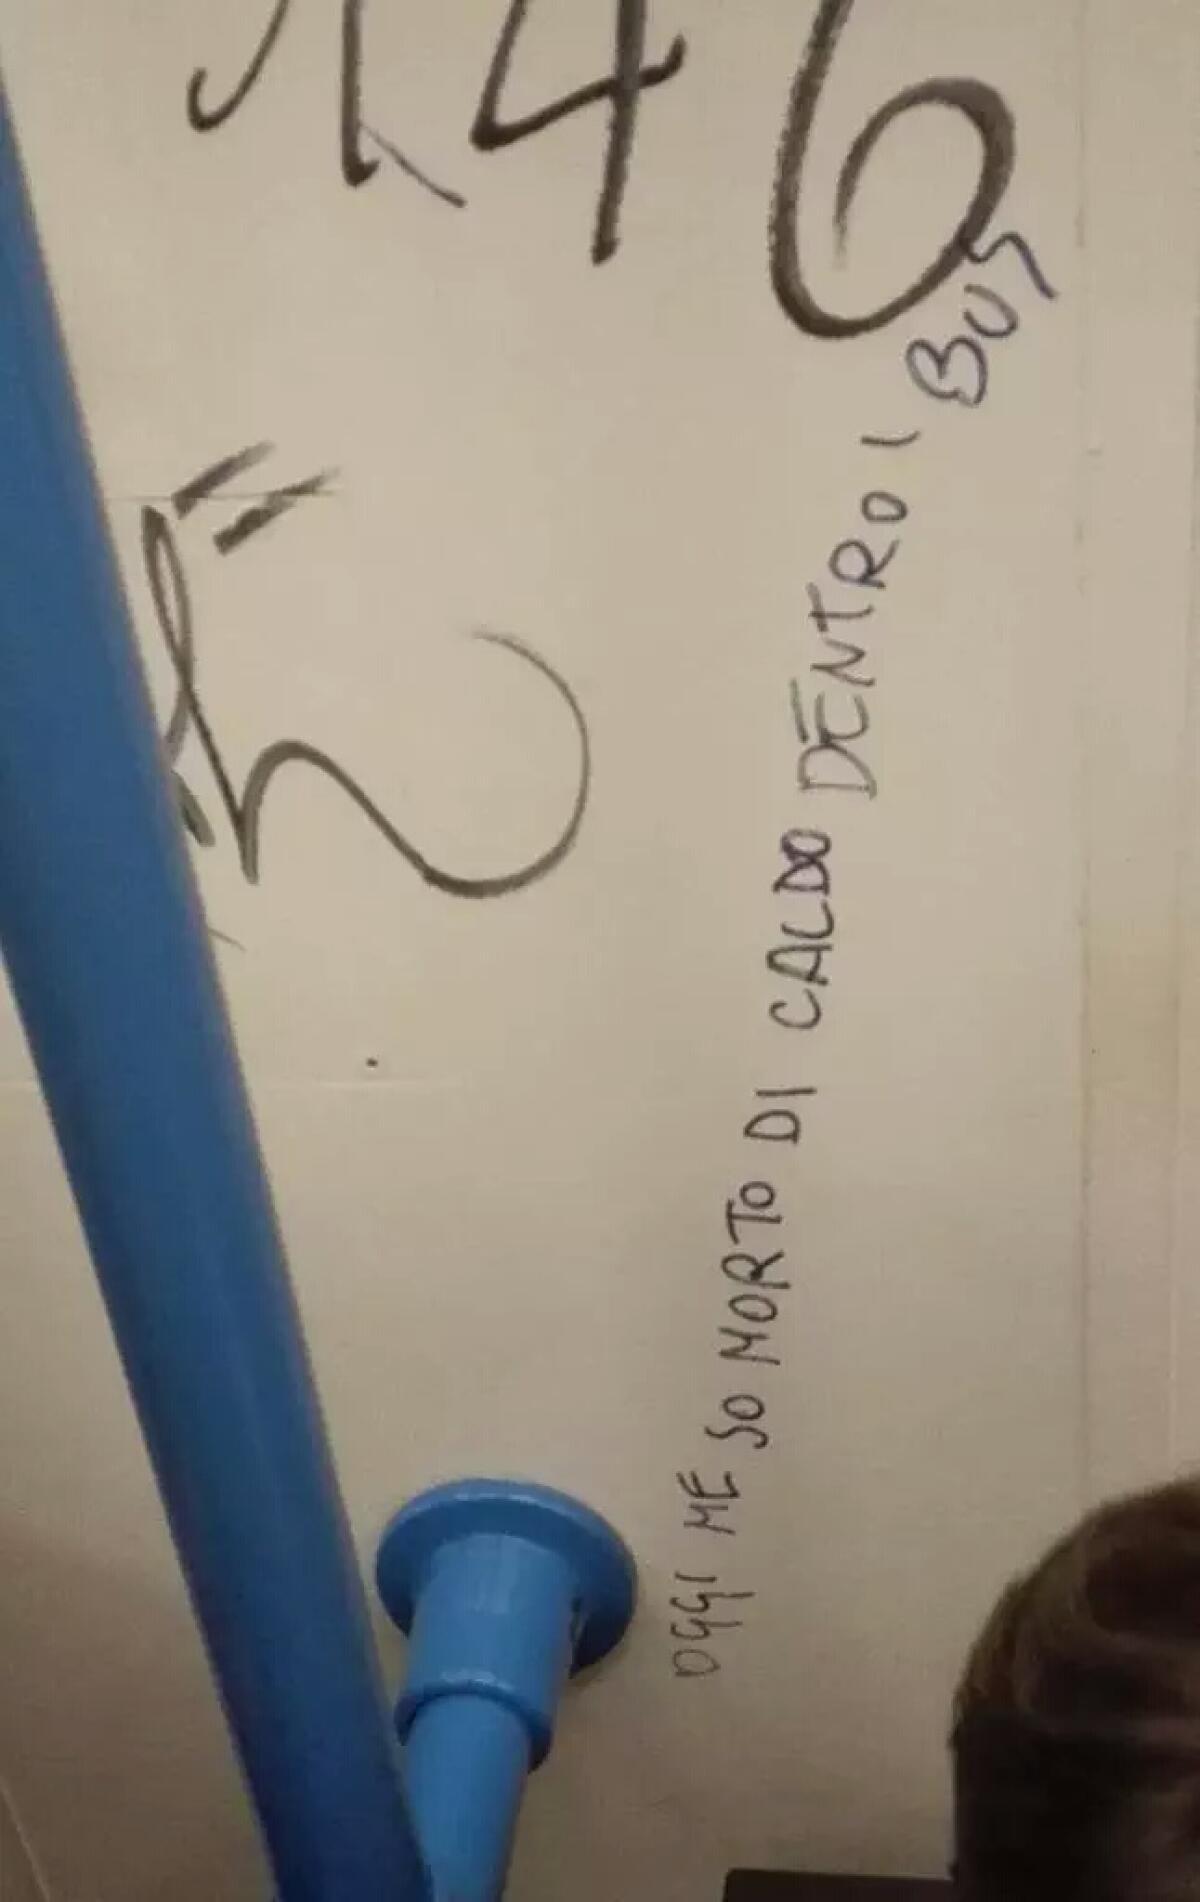 146
OGGI ME SO MORTO DI CALDO DENTRO I BUS